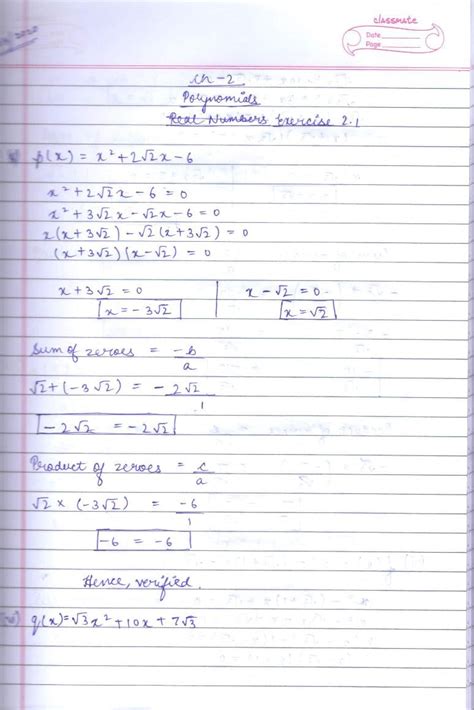 classmate
Date
Page
Ch-2
Polynomials
Real Numbers Exercise 2.1
p(x) = x² + 2√2x - 6
x² + 2√2x - 6 = 0
x² + 3√2x - √2x - 6 = 0
x(x + 3√2) - √2(x + 3√2) = 0
(x + 3√2)(x - √2) = 0
x + 3√2 = 0 | x - √2 = 0
x = -3√2 | x = √2
Sum of zeroes = -b/a
√2 + (-3√2) = -2√2/1
-2√2 = -2√2
Product of zeroes = c/a
√2 × (-3√2) = -6/1
-6 = -6
Hence, verified.
q(x) = √3x² + 10x + 7√3